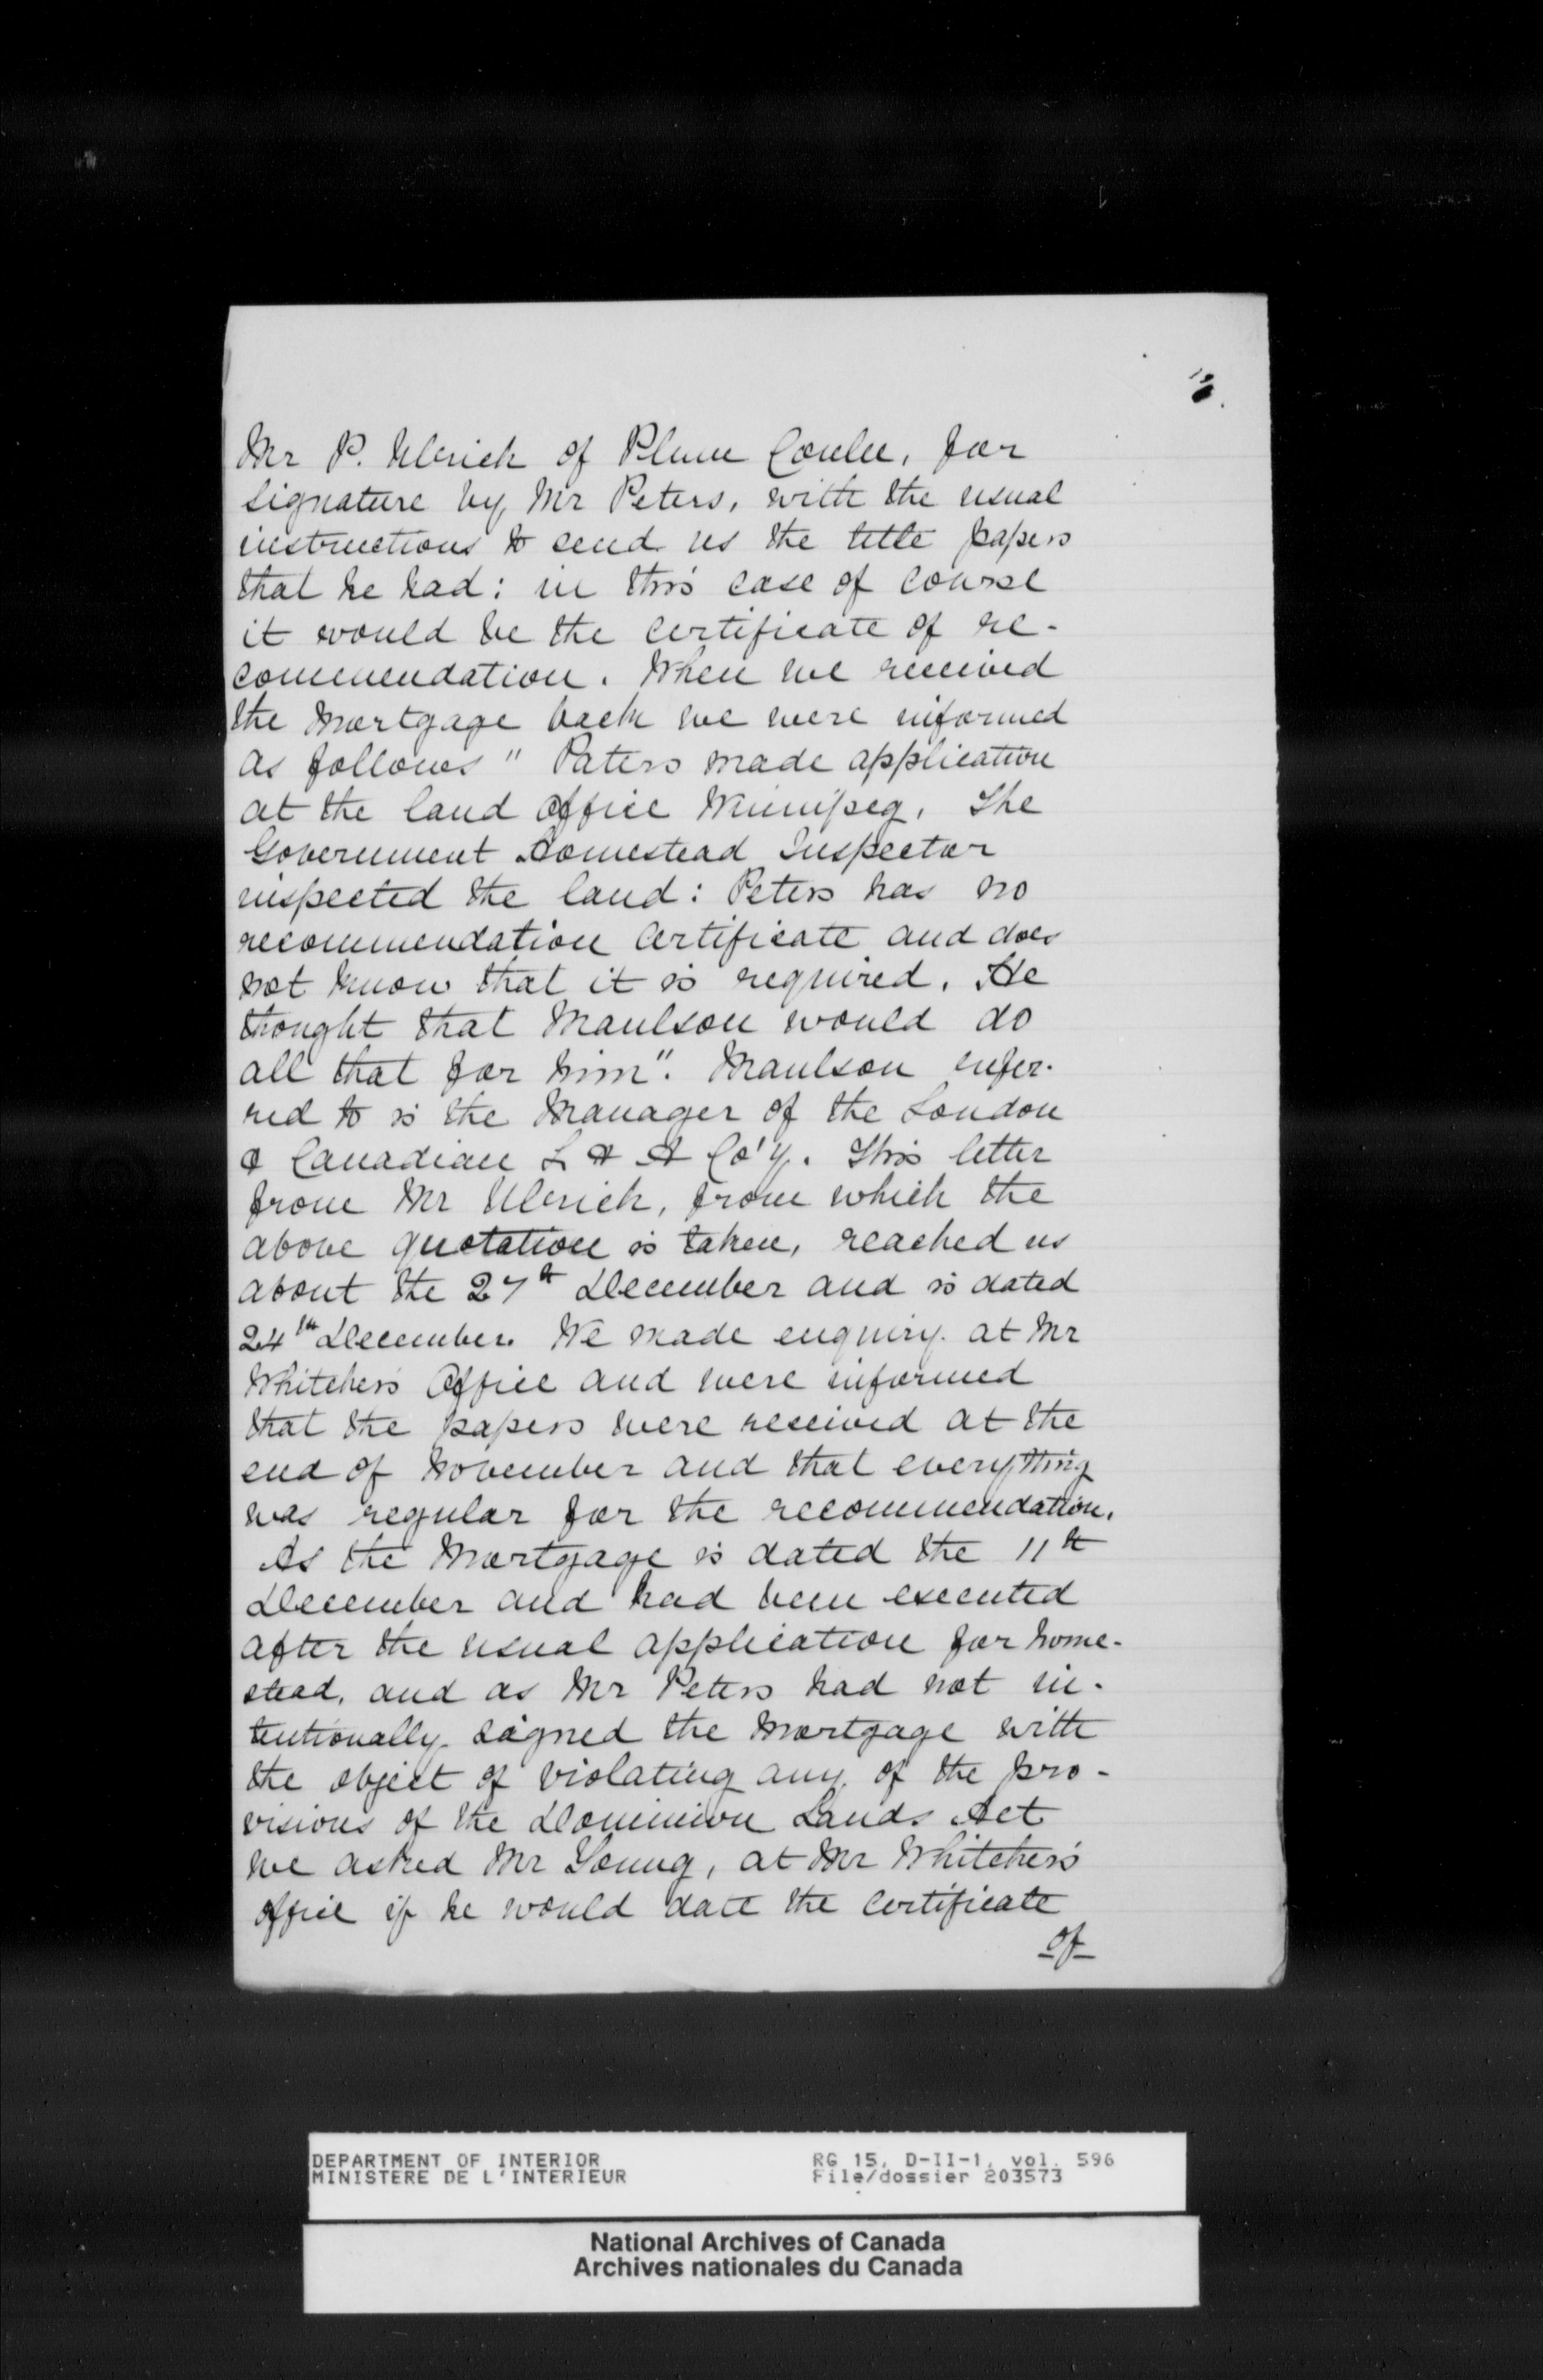 Mr P. Ulrich of Plum Coulee, for
signature by Mr Peters, with the usual
instructions to send us the title papers
that he had: in this case of course
it would be the certificate of re-
commendation. When we received
the mortgage back we were informed
as follows " Paters made application
at the land office Winnipeg. The
Government Homestead Inspector
inspected the land: Peters has no
recommendation certificate and does
not know that it is required. He
thought that Maulson would do
all that for him". Maulson refer-
red to is the Manager of the London
& Canadian L & A Co'y. This letter
from Mr Ulrich, from which the
above quotation is taken, reached us
about the 27th December and is dated
24th December. We made enquiry at Mr
Whitcher's Office and were informed
that the papers were received at the
end of November and that everything
was regular for the recommendation.
As the Mortgage is dated the 11th
December and had been executed
after the usual application for home-
stead, and as Mr Peters had not in-
tentionally signed the mortgage with
the object of violating any of the pro-
visions of the Dominion Lands Act
we asked Mr Young, at Mr Whitcher's
office if he would date the certificate
of
DEPARTMENT OF INTERIOR
MINISTERE DE L'INTERIEUR
RG 15, D-II-1, vol. 596
File/dossier 203573
National Archives of Canada
Archives nationales du Canada